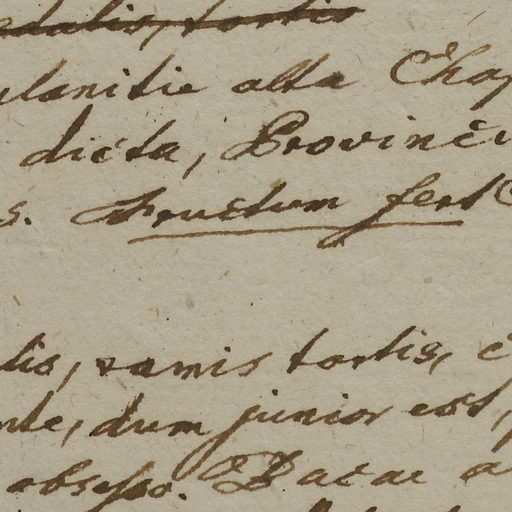 edulis, tortis
planitie alta Chap
dicta, Provinci
s. Fructum fert
lis, ramis tortis, c
nte, dum junior est,
obsesso. Bacae a